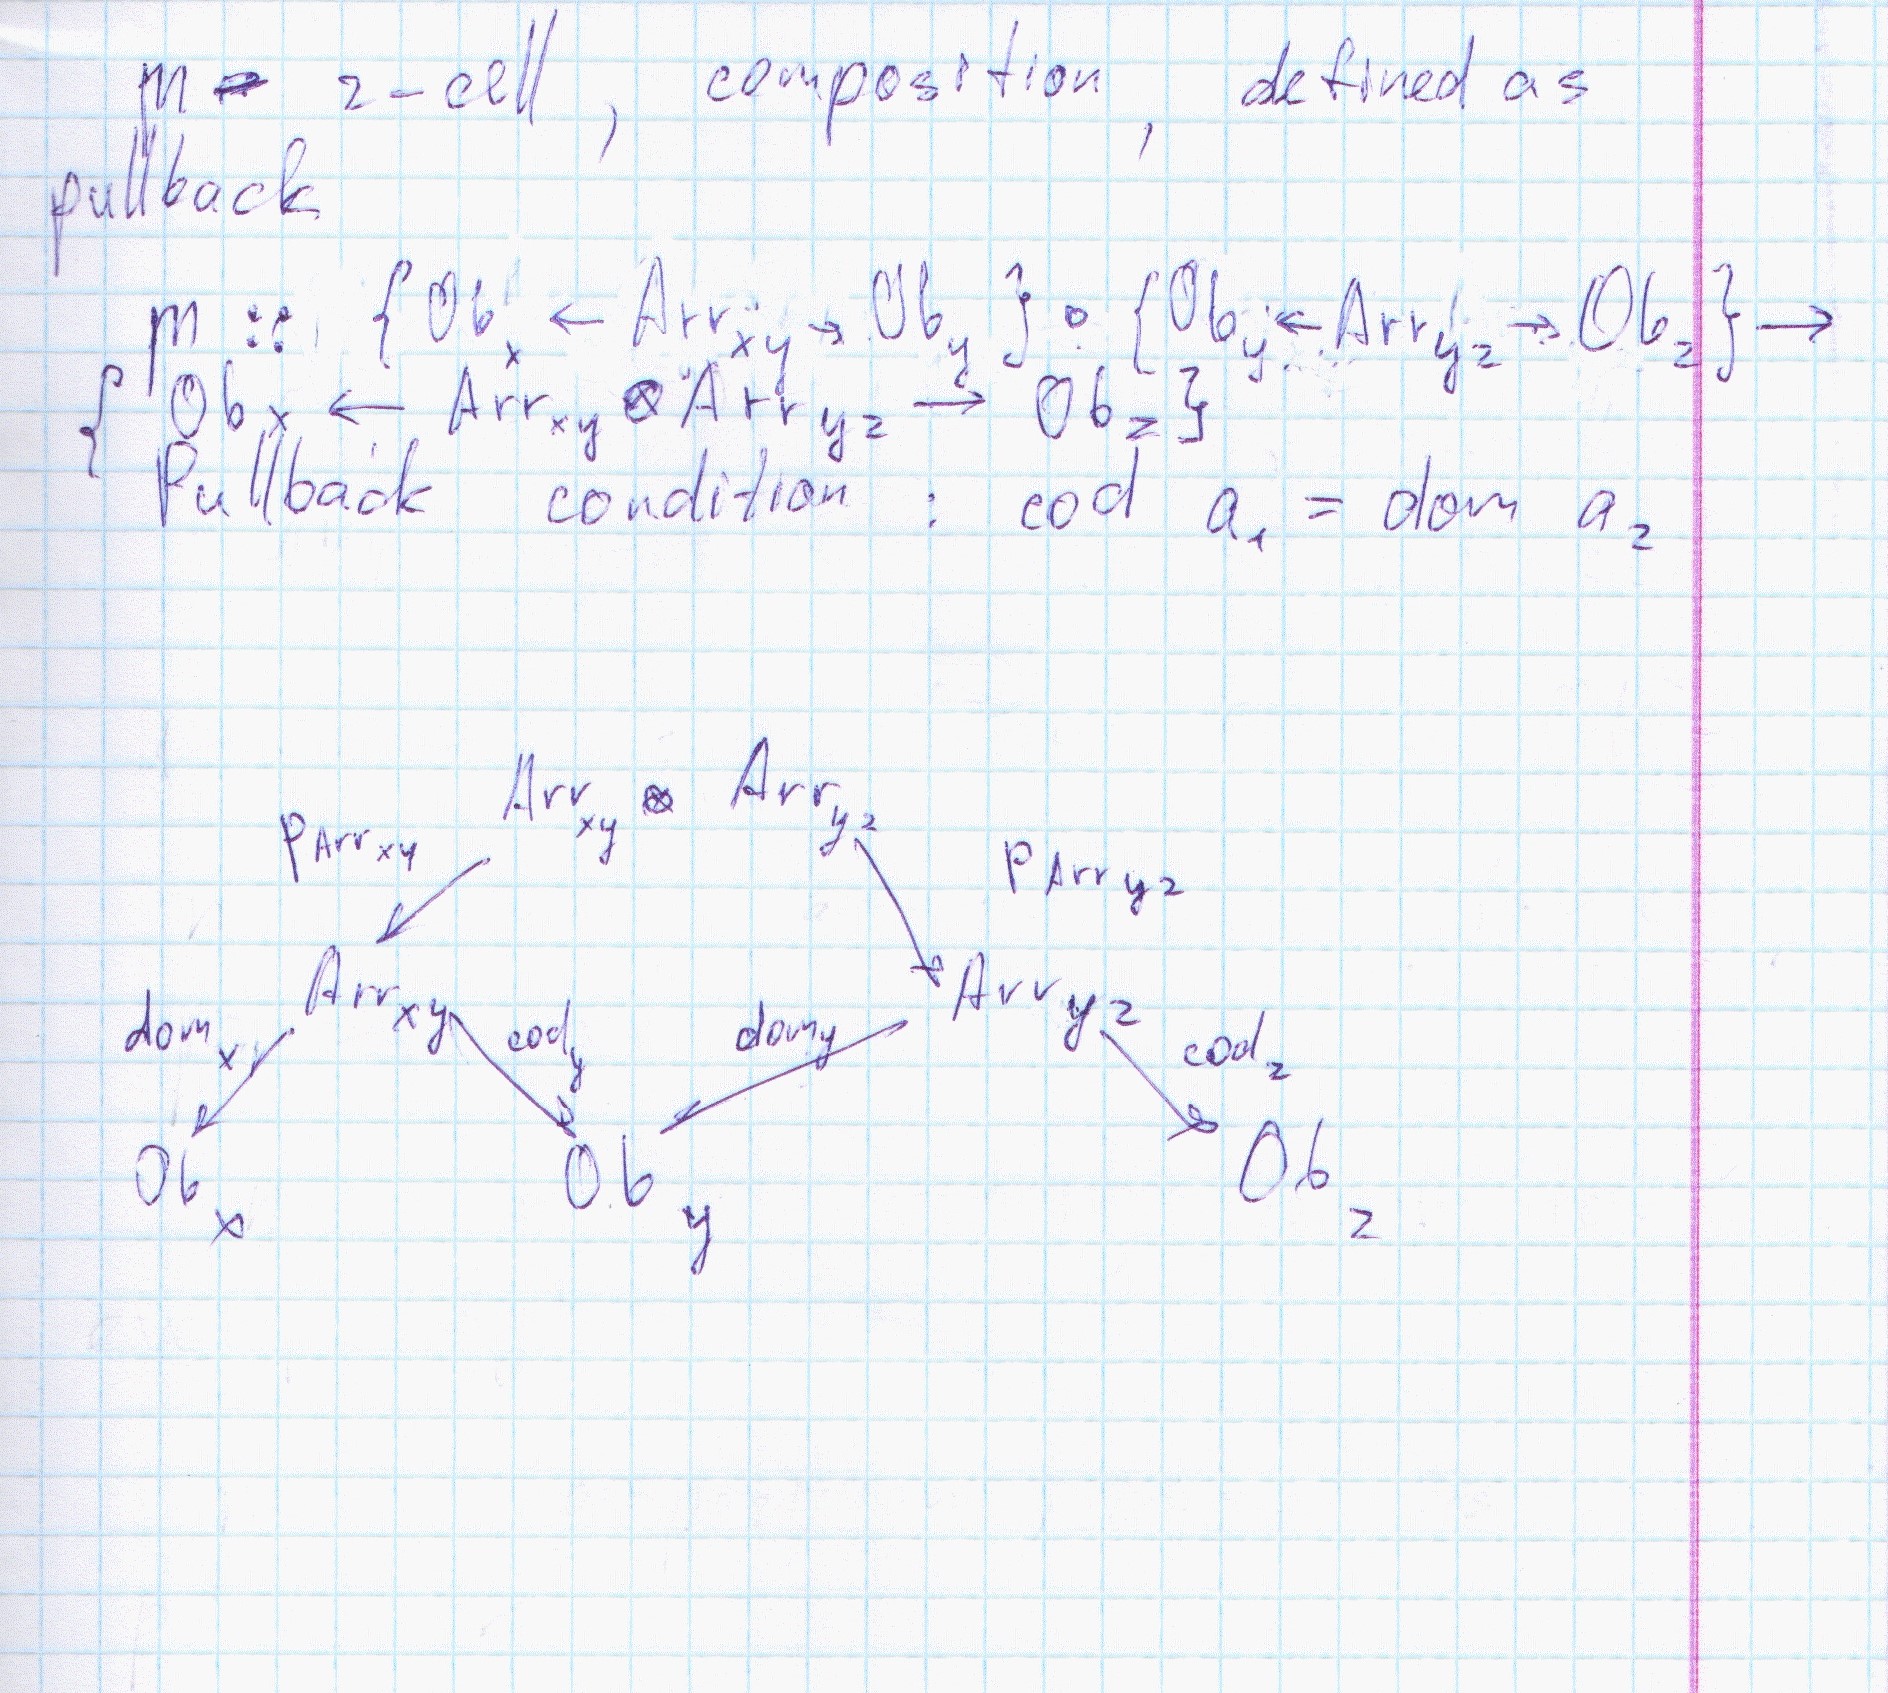 m - 2-cell, composition, defined as
pullback
m :: {Ob_x ← Arr_xy → Ob_y} ∘ {Ob_y ← Arr_yz → Ob_z} →
{Ob_x ← Arr_xy ⊗ Arr_yz → Ob_z}
Pullback condition : cod a_1 = dom a_2
Arr_xy ⊗ Arr_yz
P_Arr_xy P_Arr_yz
Arr_xy Arr_yz
dom_x cod_y dom_y cod_z
Ob_x Ob_y Ob_z